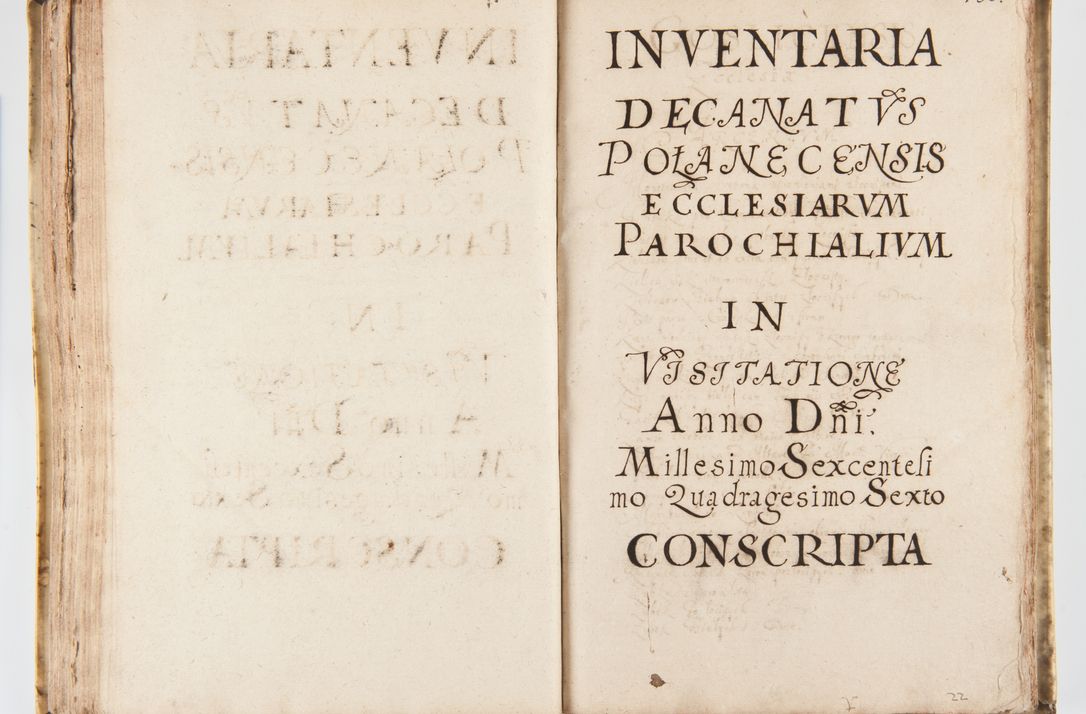 INVENTARIA
DECANATVS
POŁANECENSIS
ECCLESIARVM
PAROCHIALIVM
IN
VISITATIONE
Anno Dñi.
Millesimo Sexcentesi
mo Quadragesimo Sexto
CONSCRIPTA
22